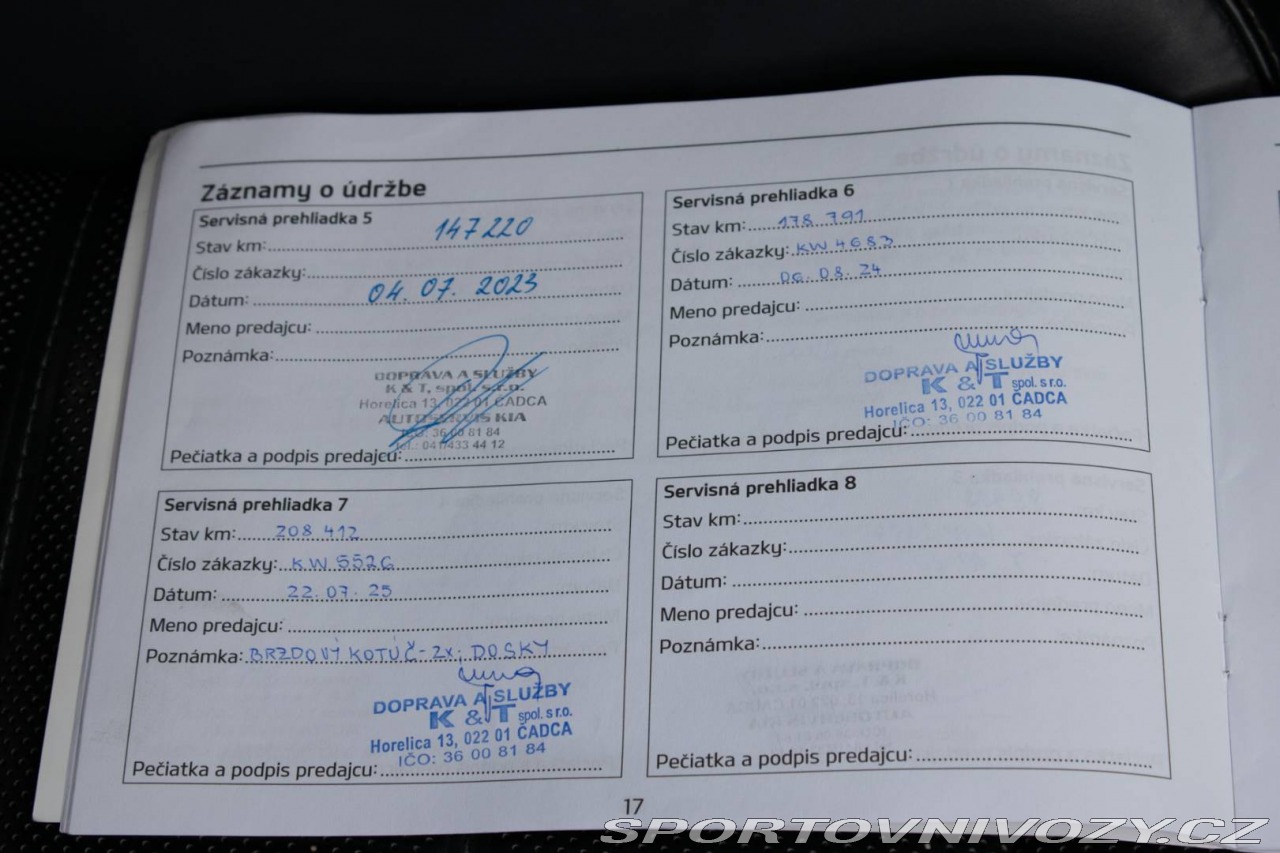 Záznamy o údržbe
Servisná prehliadka 5
Stav km: 147220
Číslo zákazky:
Dátum: 04. 07. 2023
Meno predajcu:
Poznámka:
DOPRAVA A SLUŽBY
K & T, spol. s.r.o.
Horelica 13, 022 01 ČADCA
AUTOSERVIS KIA
IČO: 36 00 81 84
Tel.: 041/433 44 12
Pečiatka a podpis predajcu:
Servisná prehliadka 6
Stav km: 178 791
Číslo zákazky: KW 4683
Dátum: 06. 08. 24
Meno predajcu:
Poznámka:
DOPRAVA A SLUŽBY
K & T spol. s r.o.
Horelica 13, 022 01 ČADCA
IČO: 36 00 81 84
Pečiatka a podpis predajcu:
Servisná prehliadka 7
Stav km: 208 412
Číslo zákazky: KW 5526
Dátum: 22. 07. 25
Meno predajcu:
Poznámka: BRZDOVÝ KOTÚČ - 2x; DOSKY
DOPRAVA A SLUŽBY
K & T spol. s r.o.
Horelica 13, 022 01 ČADCA
IČO: 36 00 81 84
Pečiatka a podpis predajcu:
Servisná prehliadka 8
Stav km:
Číslo zákazky:
Dátum:
Meno predajcu:
Poznámka:
Pečiatka a podpis predajcu:
17
SPORTOVNIVOZY.CZ